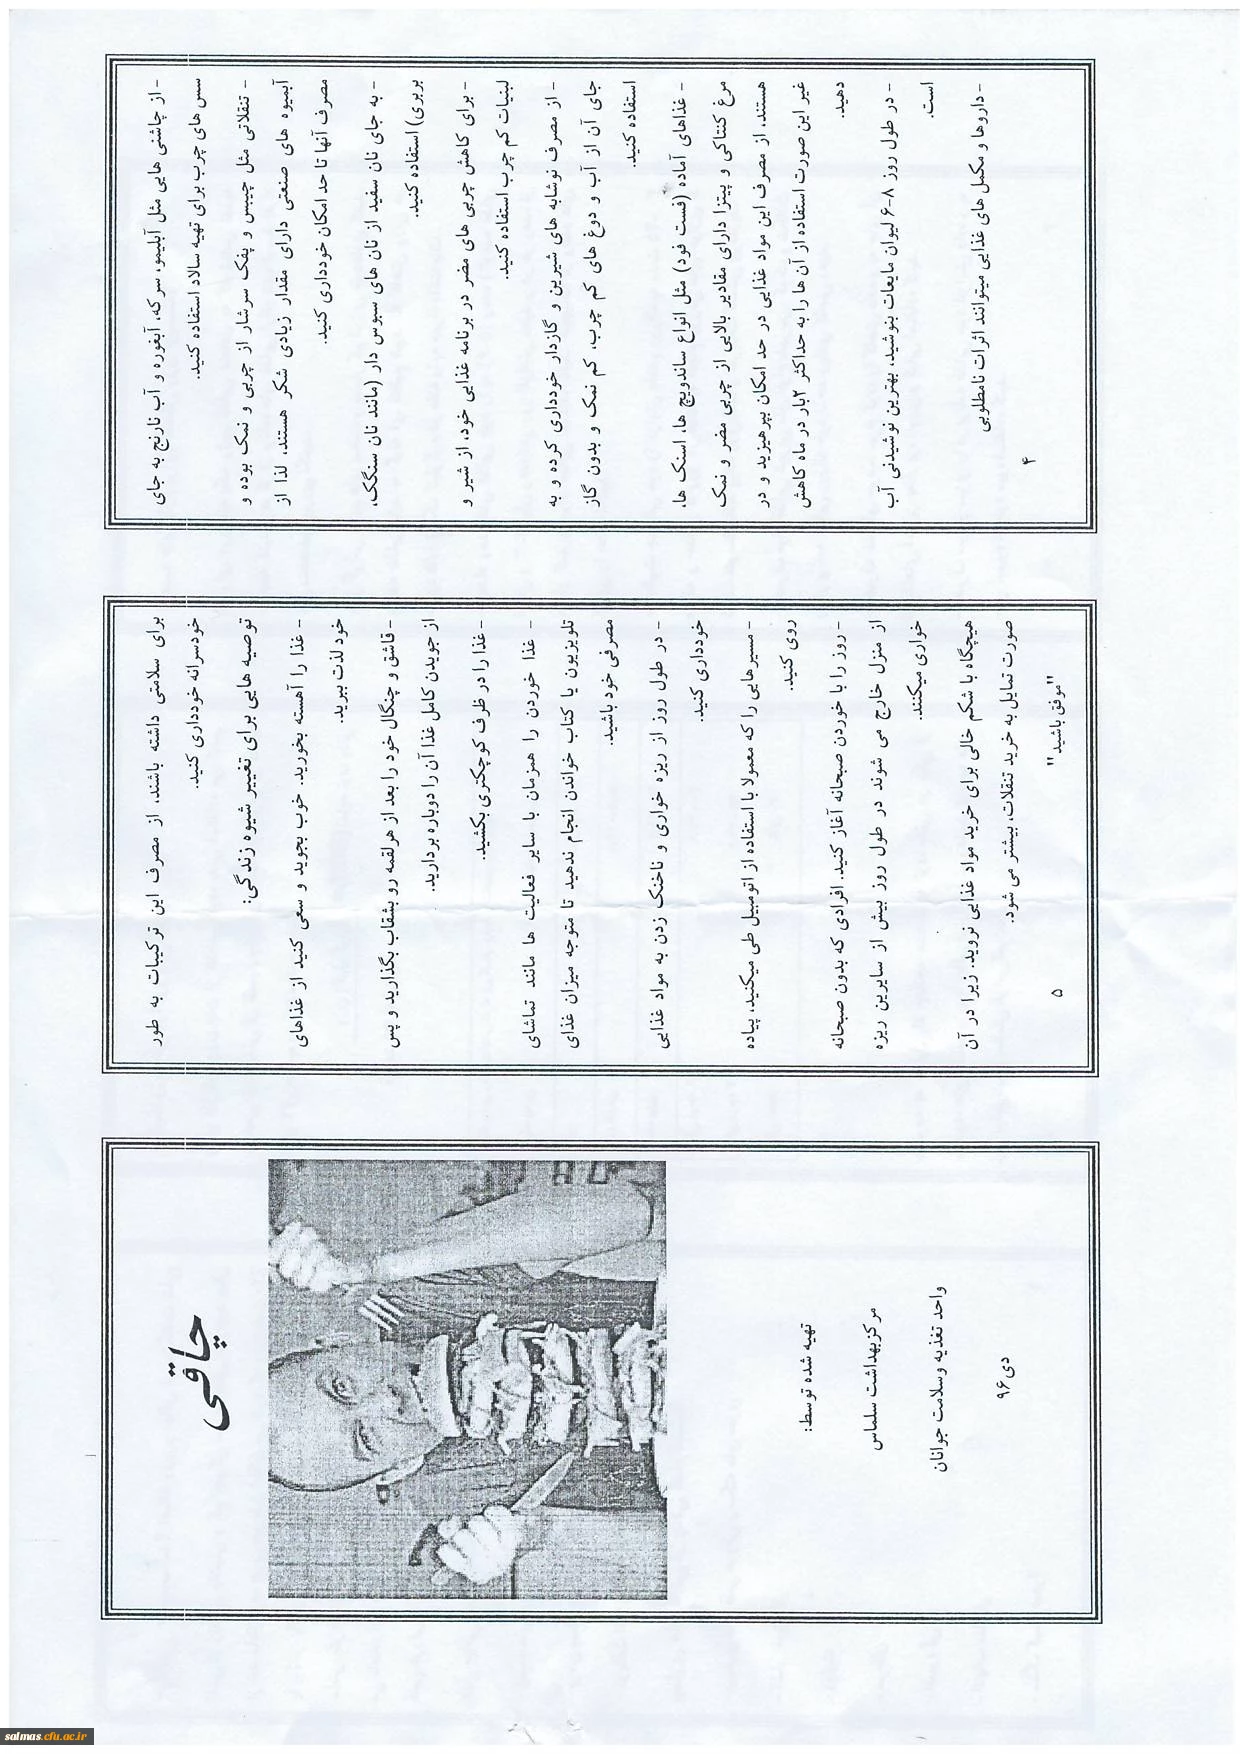 چاقی
تهیه شده توسط:
مرکزبهداشت سلماس
واحد تغذیه وسلامت جوانان
دی ۹۶
- از چاشنی هایی مثل آبلیمو، سرکه، آبغوره و آب نارنج به جای
سس های چرب برای تهیه سالاد استفاده کنید.
- تنقلاتی مثل چیپس و پفک سرشار از چربی و نمک بوده و
آبمیوه های صنعتی دارای مقدار زیادی شکر هستند، لذا از
مصرف آنها تا حد امکان خودداری کنید.
- به جای نان سفید از نان های سبوس دار (مانند نان سنگک،
بربری) استفاده کنید.
- برای کاهش چربی های مضر در برنامه غذایی خود، از شیر و
لبنیات کم چرب استفاده کنید.
- از مصرف نوشابه های شیرین و گازدار خودداری کرده و به
جای آن از آب و دوغ های کم چرب، کم نمک و بدون گاز
استفاده کنید.
- غذاهای آماده (فست فود) مثل انواع ساندویچ ها، اسنک ها،
مرغ کنتاکی و پیتزا دارای مقادیر بالایی از چربی مضر و نمک
هستند، از مصرف این مواد غذایی در حد امکان بپرهیزید و در
غیر این صورت استفاده از آن ها را به حداکثر ۲بار در ماه کاهش
دهید.
- در طول روز ۸-۶ لیوان مایعات بنوشید، بهترین نوشیدنی آب
است.
- داروها و مکمل های غذایی میتوانند اثرات نامطلوبی
۴
برای سلامتی داشته باشند، از مصرف این ترکیبات به طور
خودسرانه خودداری کنید.
توصیه هایی برای تغییر شیوه زندگی:
- غذا را آهسته بخورید. خوب بجوید و سعی کنید از غذاهای
خود لذت ببرید.
- قاشق و چنگال خود را بعد از هرلقمه رو بشقاب بگذارید و پس
از جویدن کامل غذا آن را دوباره بردارید.
-غذا را در ظرف کوچکتری بکشید.
- غذا خوردن را همزمان با سایر فعالیت ها مانند تماشای
تلویزیون یا کتاب خواندن انجام ندهید تا متوجه میزان غذای
مصرفی خود باشید.
- در طول روز از ریزه خواری و ناخنک زدن به مواد غذایی
خودداری کنید.
- مسیرهایی را که معمولا با استفاده از اتومبیل طی میکنید، پیاده
روی کنید.
-روز را با خوردن صبحانه آغاز کنید. افرادی که بدون صبحانه
از منزل خارج می شوند در طول روز بیش از سایرین ریزه
خواری میکنند.
هیچگاه با شکم خالی برای خرید مواد غذایی نروید. زیرا در آن
صورت تمایل به خرید تنقلات، بیشتر می شود.
"موفق باشید"
۵
salmas.cfu.ac.ir